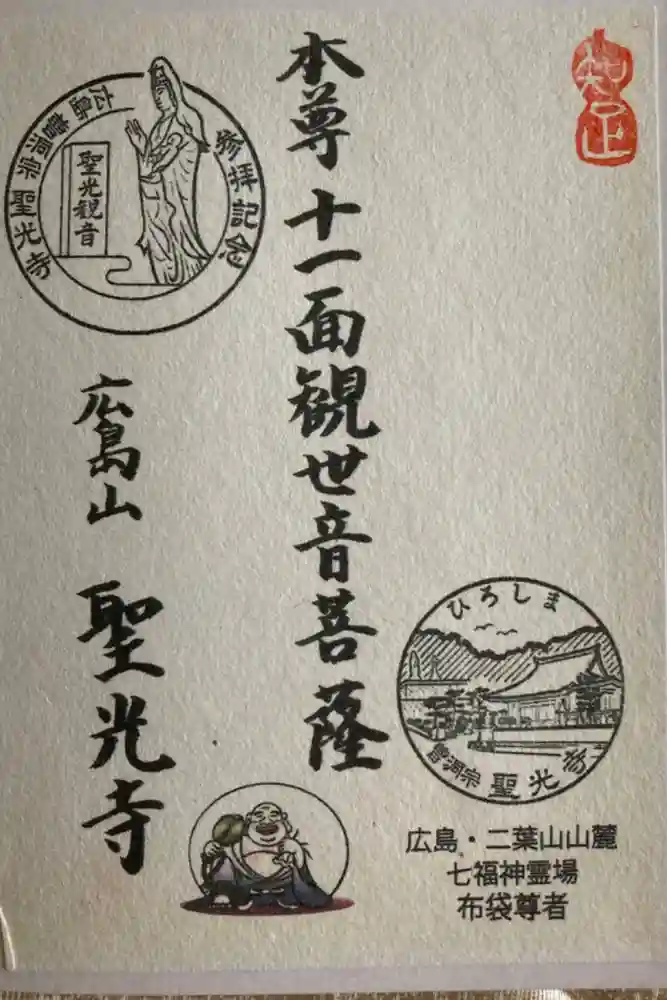 知足
本尊 十一面観世音菩薩
広島山 聖光寺
広島 曹洞宗 聖光寺
参拝記念
聖光観音
ひろしま
曹洞宗 聖光寺
広島・二葉山山麓
七福神霊場
布袋尊者